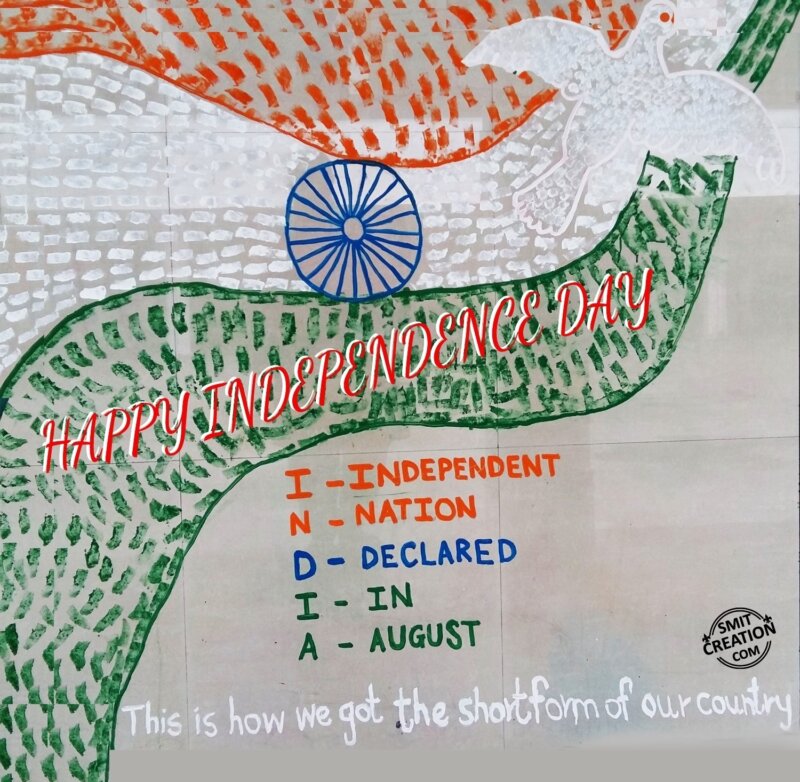 HAPPY INDEPENDENCE DAY
I - INDEPENDENT
N - NATION
D - DECLARED
I - IN
A - AUGUST
SMIT
CREATION
COM
This is how we got the shortform of our country